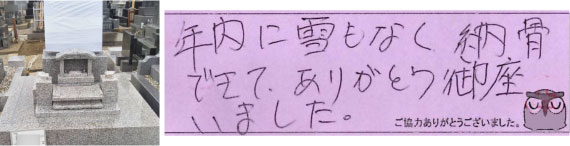 年内に雪もなく納骨
できて、ありがとう御座
いました。
ご協力ありがとうございました。